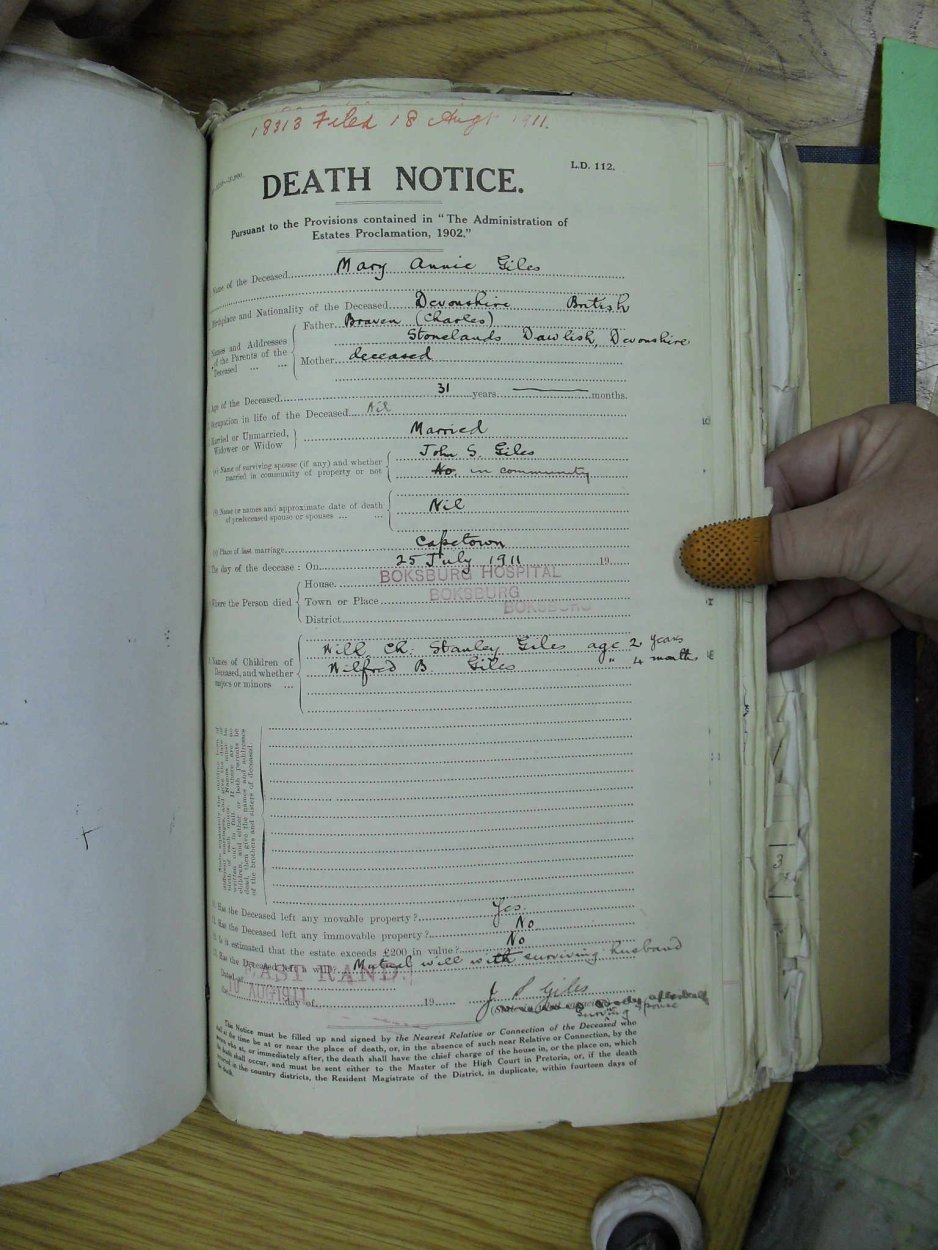 18313 Filed 18 Augt 1911.
L.D. 112.
DEATH NOTICE.
Pursuant to the Provisions contained in "The Administration of
Estates Proclamation, 1902."
Name of the Deceased Mary Annie Giles
Birthplace and Nationality of the Deceased Devonshire British
Names and Addresses of the Parents of the Deceased
Father Braven (Charles)
Stonelands Dawlish, Devonshire
Mother deceased
Age of the Deceased 31 years months.
Occupation in life of the Deceased Nil
Married or Unmarried, Widower or Widow Married
(a) Name of surviving spouse (if any) and whether married in community of property or not John S. Giles
No. in community
(b) Name or names and approximate date of death of predeceased spouse or spouses Nil
(c) Place of last marriage Capetown
The day of the decease: On 25 July 1911 19
Where the Person died
House BOKSBURG HOSPITAL
Town or Place BOKSBURG
District BOKSBURG
Names of Children of Deceased, and whether majors or minors
Will. Ch. Stanley Giles age 2 years
Wilfred B Giles " 4 months
Has the Deceased left any movable property? Yes.
Has the Deceased left any immovable property? No
Is it estimated that the estate exceeds £200 in value? No
Has the Deceased left a will? Mutual will with surviving husband
EAST RAND.
AUG 1911
day of 19
J S Giles
surviving spouse
The Notice must be filled up and signed by the Nearest Relative or Connection of the Deceased who
shall at the time be at or near the place of death, or, in the absence of such near Relative or Connection, by the
person who at, or immediately after, the death shall have the chief charge of the house in, or the place on, which
the death shall occur, and must be sent either to the Master of the High Court in Pretoria, or, if the death
occurred in the country districts, the Resident Magistrate of the District, in duplicate, within fourteen days of
the death.